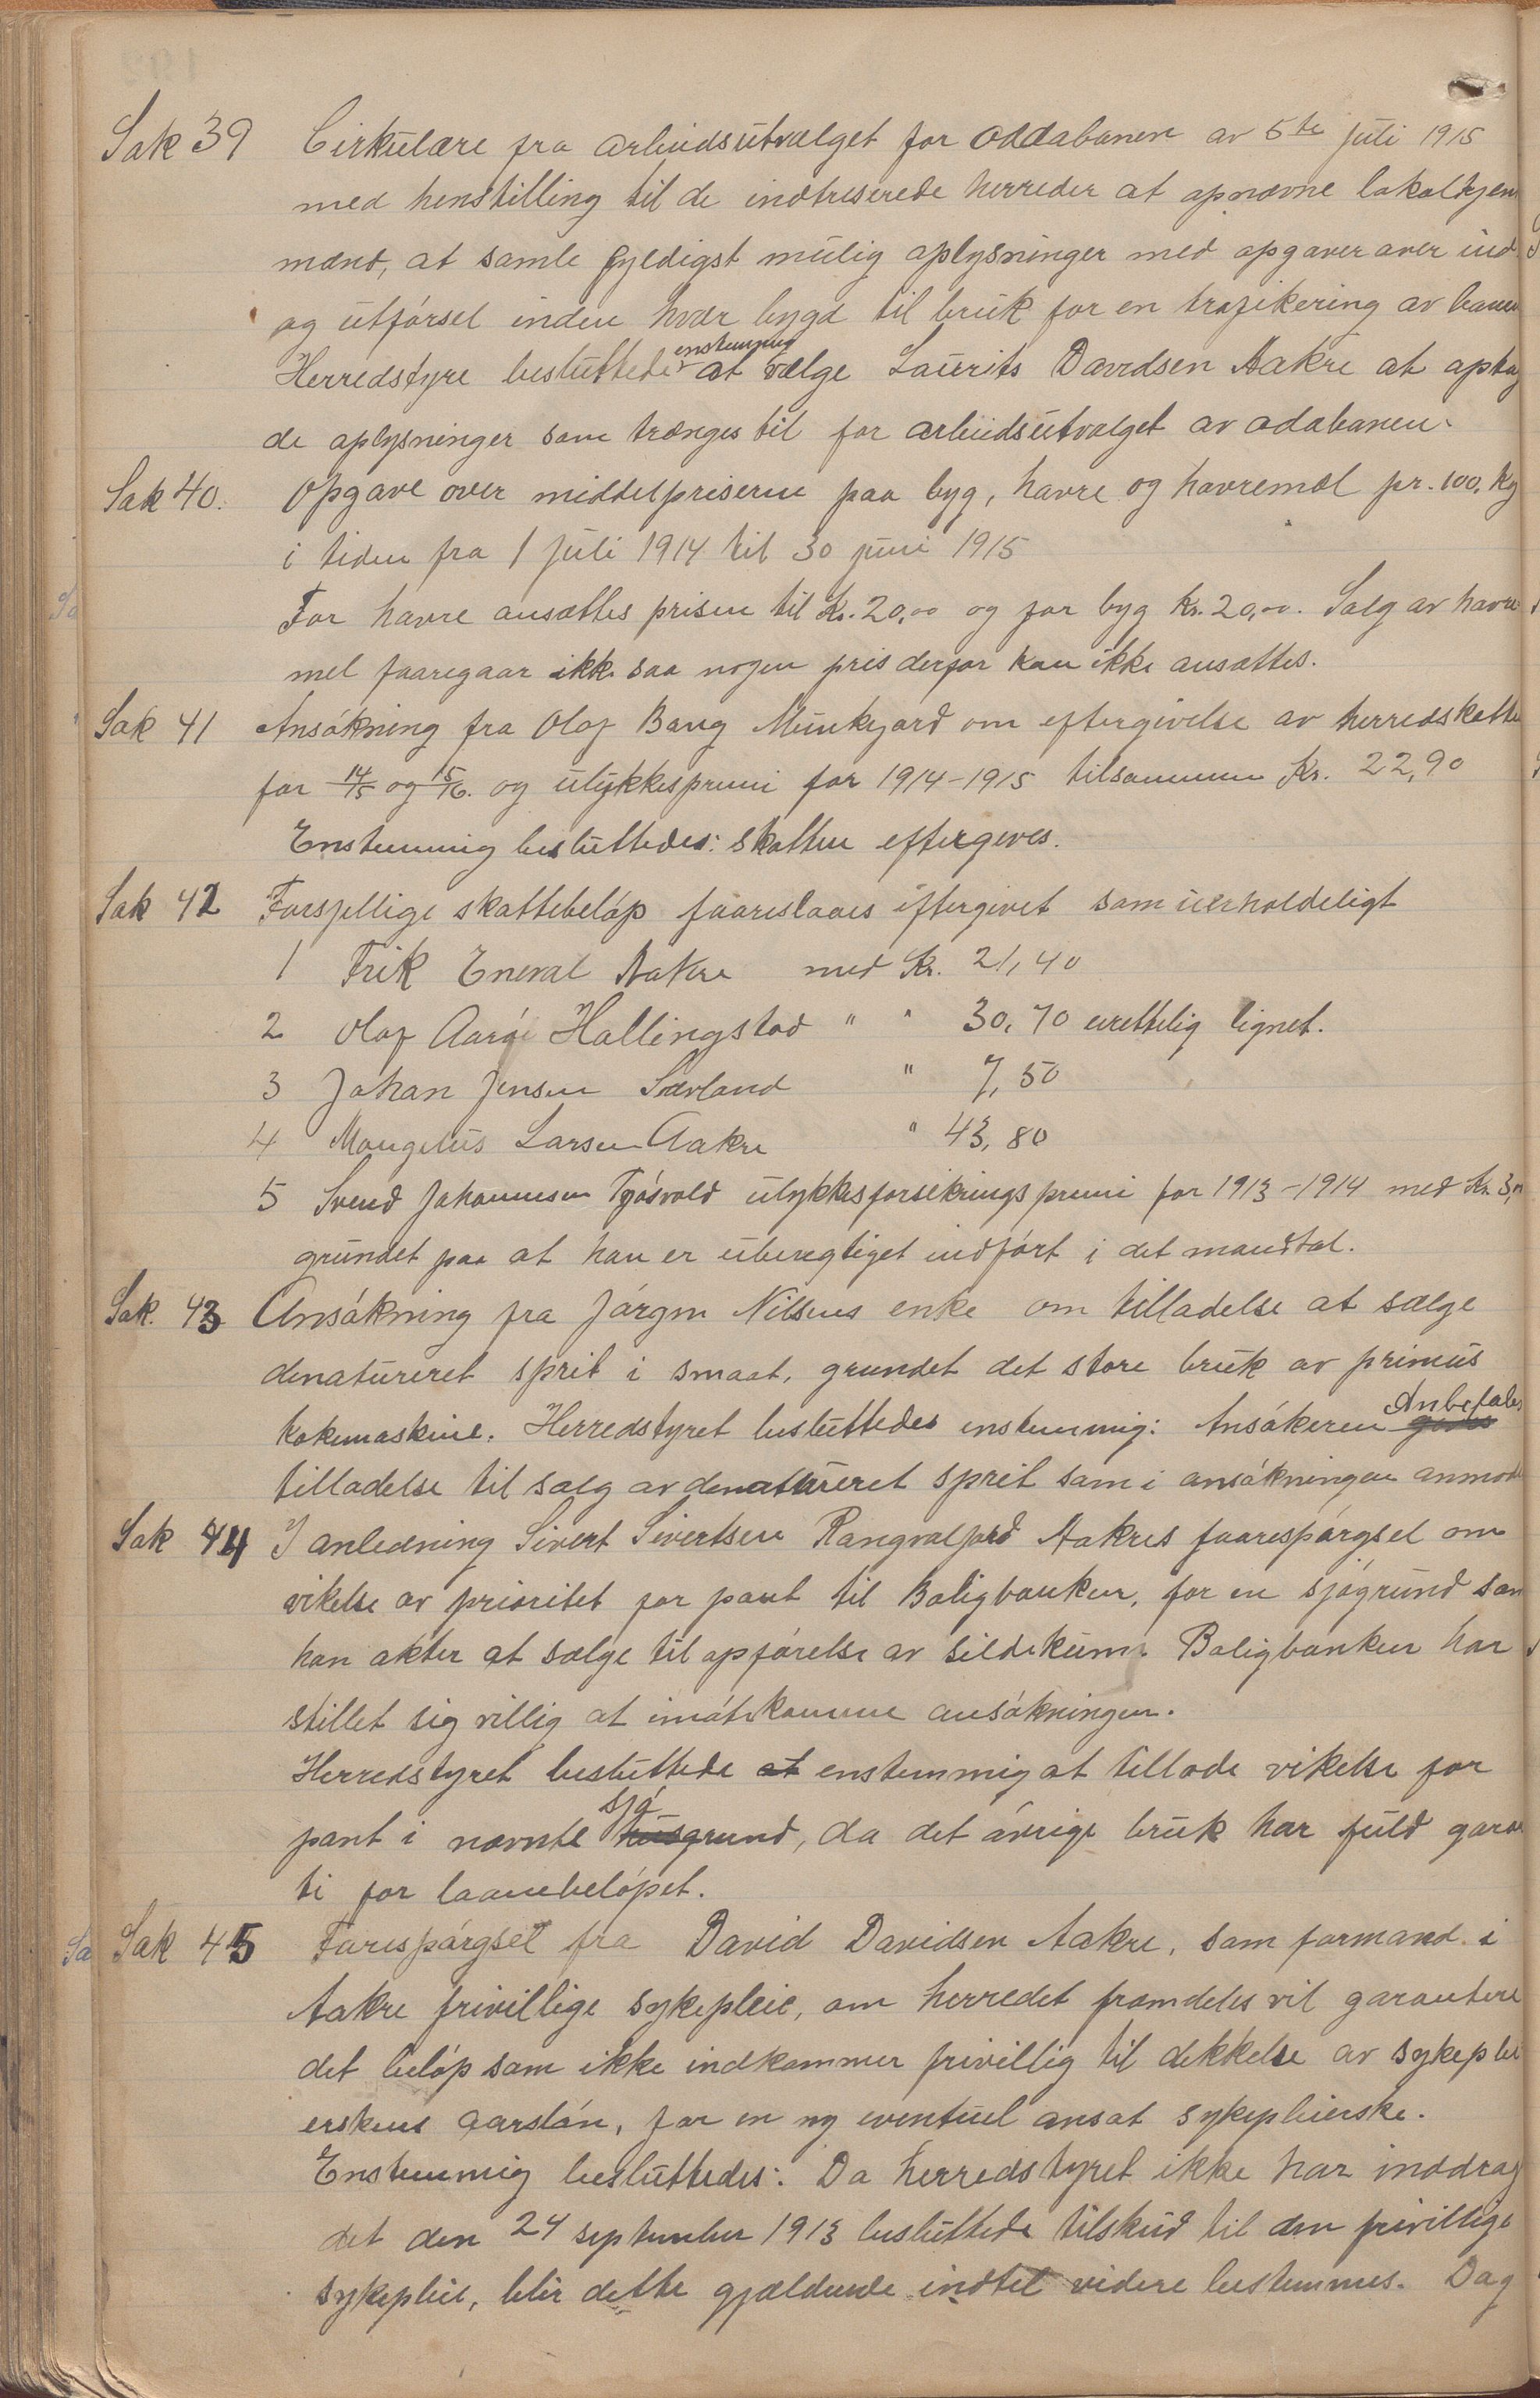 Sak 39 Cirkulære fra arbeidsutvalget for Oddabanen av 5te juli 1915
med henstilling til de indtreserede herreder at opnævne lokalkjen
mænd, at samle fyldigst mulig oplysninger med opgaver over ind
og utførsel inden hver bygd til bruk for en trafikering av banen
Herredstyre besluttede enstemmig at vælge Laurits Davidsen Aakre at opta
de oplysninger som trænges til for arbeidsutvalget av odabanen.
Sak 40. Opgave over middelpriserne paa byg, havre og havremæl pr. 100. kg
i tiden fra 1 juli 1914 til 30 juni 1915
For havre ansættes prisen til Kr. 20,00 og for byg Kr. 20,00. Salg av havre
mel foaregaar ikke saa nogen pris derfor kan ikke ansættes.
Sak 41 Ansökning fra Olaf Bang Munkejord om eftergivelse av herredskatte
for 14/15 og 15/16. og ulykkespremi for 1914-1915 tilsammen Kr. 22,90
Enstemmig besluttedes: skatten eftergives.
Sak 42 Forsjellige skattebeløp foareslaaes eftergivet som uerholdeligt
1 Erik Eneval Aakre med Kr. 21,40
2 Olaf Aarøe Hallingstad " " 30,70 urettelig lignet.
3 Johan Jensen Sævland " 7,50
4 Mangelus Larsen Aakre " 43,80
5 Svend Johannesen Tjøsvold ulykkesforsikringspremi for 1913-1914 med Kr. 3,
grundet paa at han er uberegtiget indført i det mandtal.
Sak. 43 Ansøkning fra Jørgen Nilsens enke om tilladelse at sælge
denatureret sprit i smaat, grundet det store bruk av primus
kokemaskine. Herredstyret besluttedes enstemmig: Ansøkeren gives Anbefales
tilladelse til salg av denatureret sprit som i ansøkningen anmod
Sak 44 I anledning Sivert Sivertsen Rangvaljord Aakres foarespørgsel om
vikelse av prioritet for pant til Boligbanken, for en sjøgrund som
han akter at sælge til opførelse av sildekum. Boligbanken har
stillet sig villig at imøtekomme ansøkningen.
Herredstyret besluttede at enstemmig at tillade vikelse for
pant i nævnte husgrund sjø, da det øvrige bruk har fuld garan
ti for laanebeløpet.
Sak 45 Forespørgsel fra David Davidsen Aakre, som formand i
Aakre frivillige sykepleie, om herredet fremdeles vil garantere
det beløp som ikke indkommer frivillig til dekkelse av sykeplei
erskens aarsløn, for en ny eventuel ansat sykepleierske.
Enstemmig besluttedes: Da herredstyret ikke har inddrag
det den 24 september 1913 besluttede tilskud til den frivillige
sykepleie, blir dette gjældende indtil videre bestemmes. Dag